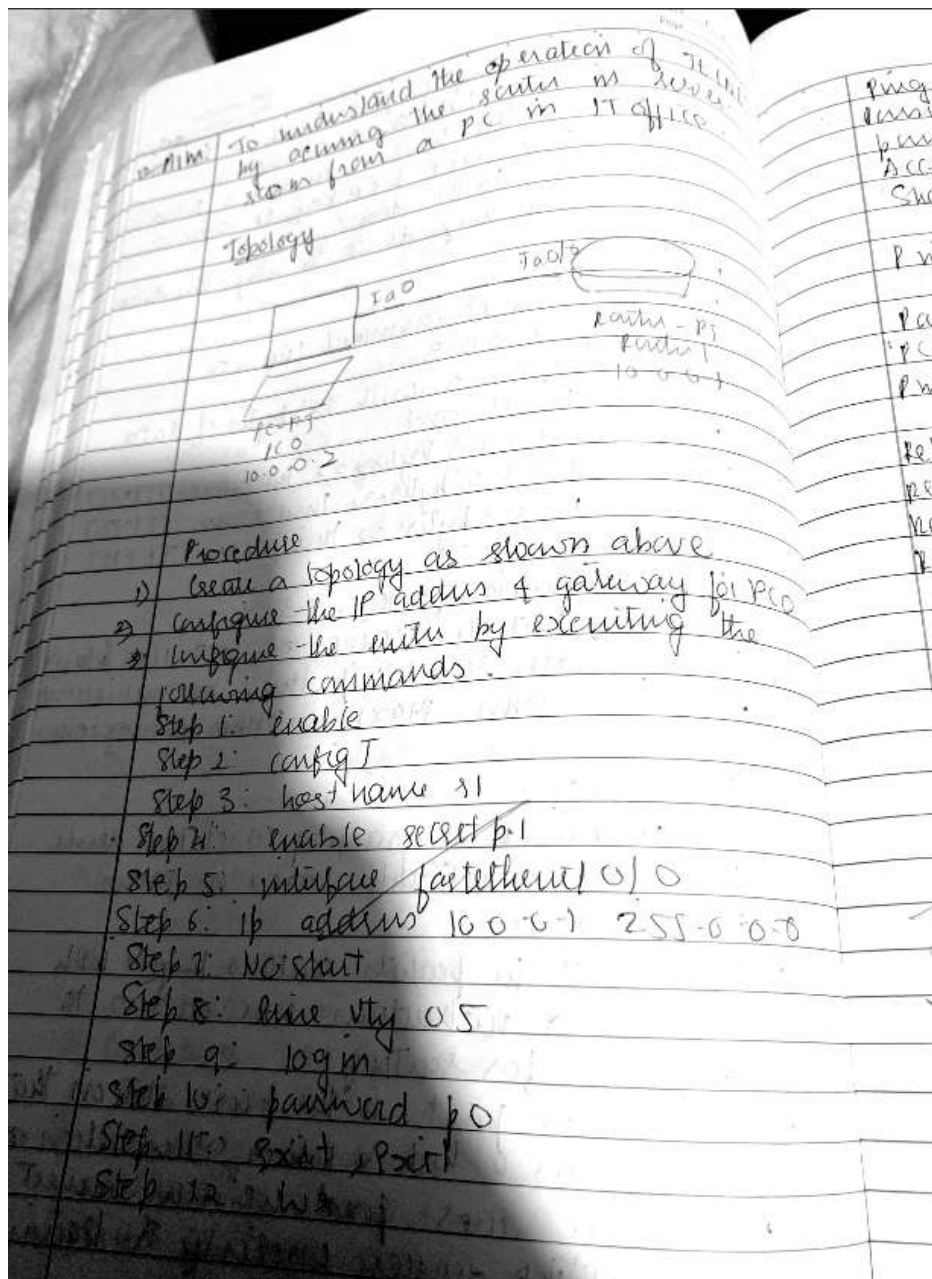 Aim: To understand the operation of TELNET
by accessing the router in server
room from a PC in IT office.
Topology
Fa0
Fa0/0
Router-PT
Router1
10.0.0.1
PC-PT
PC0
10.0.0.2
Procedure
1) Create a topology as shown above
2) Configure the IP address & gateway for PC0
3) Configure the router by executing the
following commands.
Step 1: enable
Step 2: config T
Step 3: host name r1
Step 4: enable secret p1
Step 5: interface fastethernet 0/0
Step 6: ip address 10.0.0.1 255.0.0.0
Step 7: No shut
Step 8: line vty 0 5
Step 9: login
Step 10: password p0
Step 11: exit, exit
Step 12:
Ping
Acc
Sho